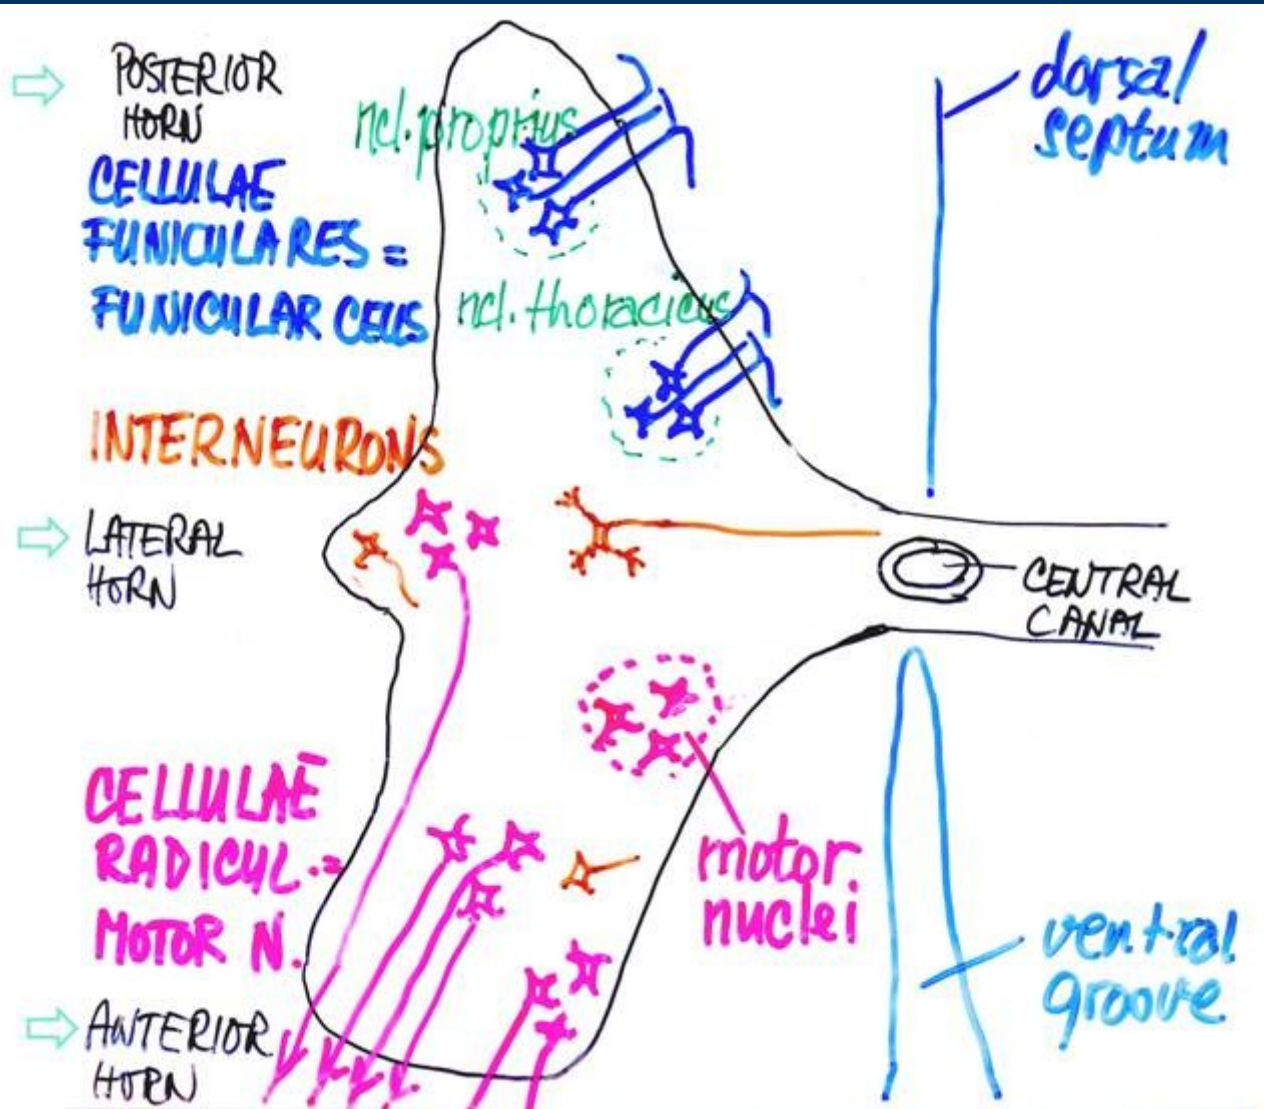 POSTERIOR
HORN
CELLULAE
FUNICULARES =
FUNICULAR CELLS
ncl. proprius
ncl. thoracicus
dorsal
septum
INTERNEURONS
LATERAL
HORN
CENTRAL
CANAL
CELLULAE
RADICUL.=
MOTOR N.
motor
nuclei
ventral
groove
ANTERIOR
HORN